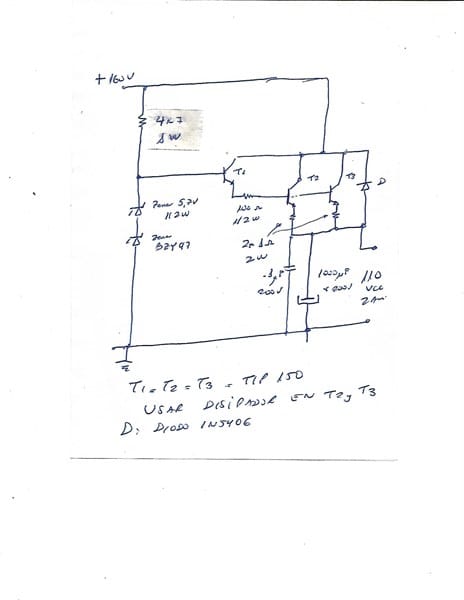 +160V
4k7
1W
T1
T2
T3
D
Zener 5,2V
1/2W
100 Ω
1/2W
Zener
2x 1Ω
2W
200V
1000µF
x 200V
110
VCC
2 Am
T1 = T2 = T3 = TIP 150
USAR DISIPADOR EN T2 y T3
D: DIODO 1N5406